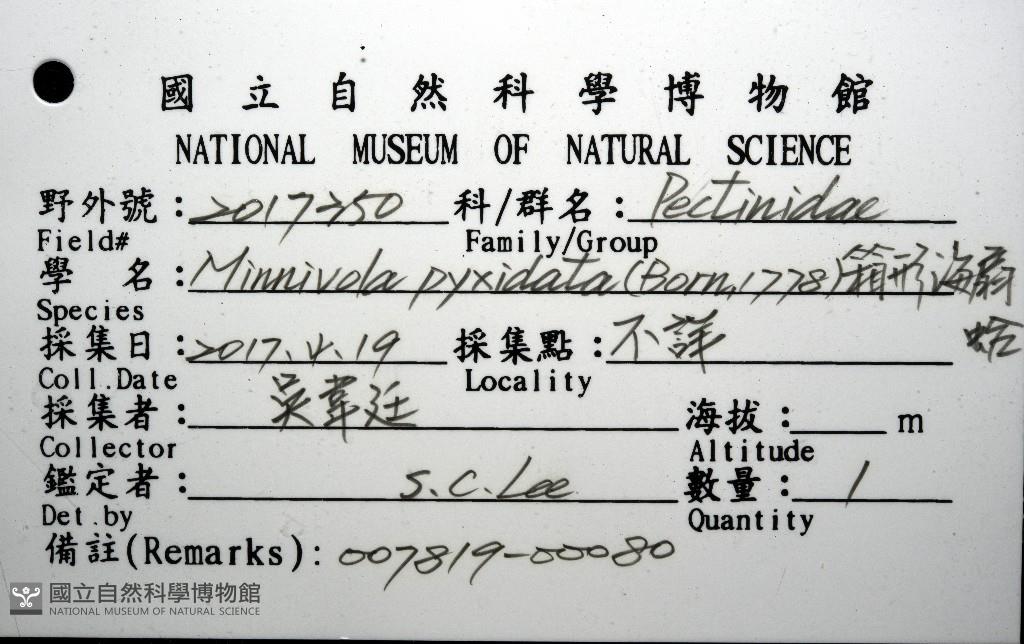 國立自然科學博物館
NATIONAL MUSEUM OF NATURAL SCIENCE
野外號：2017-350 科/群名：Pectinidae
Field# Family/Group
學名：Minnivola pyxidata (Born, 1778) 箱形海扇蛤
Species
採集日：2017.4.19 採集點：不詳
Coll.Date Locality
採集者：吳韋廷 海拔： m
Collector Altitude
鑑定者：S.C.Lee 數量：1
Det.by Quantity
備註(Remarks): 007819-00080
國立自然科學博物館
NATIONAL MUSEUM OF NATURAL SCIENCE